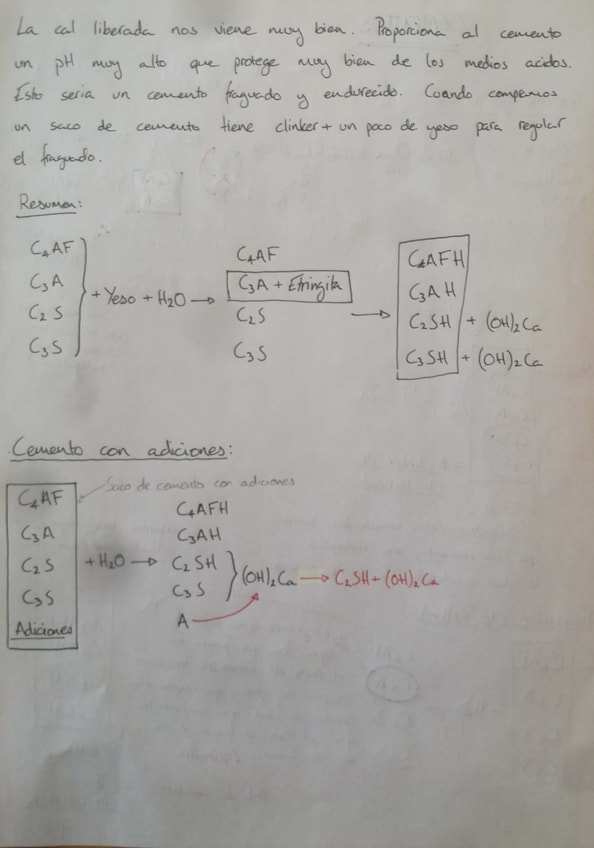 La cal liberada nos viene muy bien. Proporciona al cemento
un pH muy alto que protege muy bien de los medios acidos.
Esto seria un cemento fraguado y endurecido. Cuando compramos
un saco de cemento tiene clinker + un poco de yeso para regular
el fraguado.
Resumen:
C₄AF
C₃A
C₂S
C₃S
+ Yeso + H₂O →
C₄AF
C₃A + Etringita
C₂S
C₃S
→
C₄AFH
C₃AH
C₂SH + (OH)₂Ca
C₃SH + (OH)₂Ca
Cemento con adiciones:
Saco de cemento con adiciones
C₄AF
C₃A
C₂S
C₃S
Adiciones
+ H₂O →
C₄AFH
C₃AH
C₂SH
C₃S
A
(OH)₂Ca → C₂SH + (OH)₂Ca